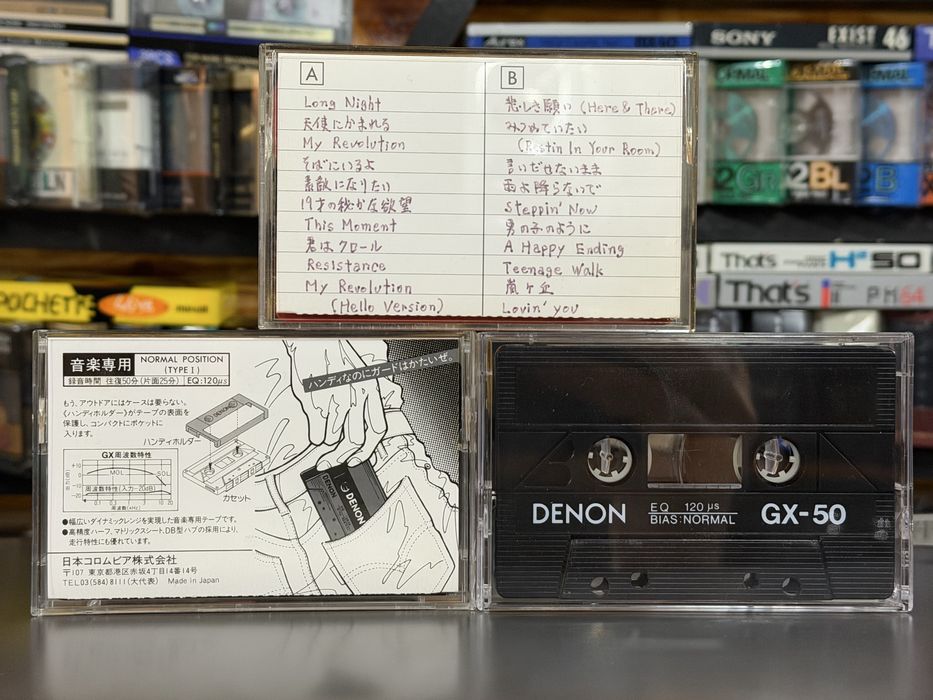 SONY EXIST 46
2GR
2BL
2B
LN
That's H² 50
That's PM64
POCHETTE
maxell
A
Long Night
天使にかまれる
My Revolution
そばにいるよ
素敵になりたい
19才の秘かな欲望
This Moment
君はクロール
Resistance
My Revolution
(Hello Version)
B
悲しき願い (Here & There)
みつめていたい
(Restin In Your Room)
言いだせないまま
雨よ降らないで
Steppin' Now
男の子のように
A Happy Ending
Teenage Walk
嵐ヶ丘
Lovin' you
音楽専用
NORMAL POSITION
(TYPE I)
録音時間 往復50分(片面25分) EQ:120μs
もう、アウトドアにはケースは要らない。
《ハンディホルダー》がテープの表面を
保護し、コンパクトにポケットに
入ります。
ハンディホルダー
DENON
カセット
GX周波数特性
MOL
SOL
周波数特性(入力-20dB)
出力(dB)
+10
0
-10
-20
周波数(kHz)
●幅広いダイナミックレンジを実現した音楽専用テープです。
●高精度ハーフ、マトリックスシート、DB型ハブの採用により、
走行特性にも優れています。
日本コロムビア株式会社
〒107 東京都港区赤坂4丁目14番14号
TEL03(584)8111(大代表) Made in Japan
ハンディなのにガードはかたいぜ。
DENON
DENON
EQ 120 μs
BIAS:NORMAL
GX-50